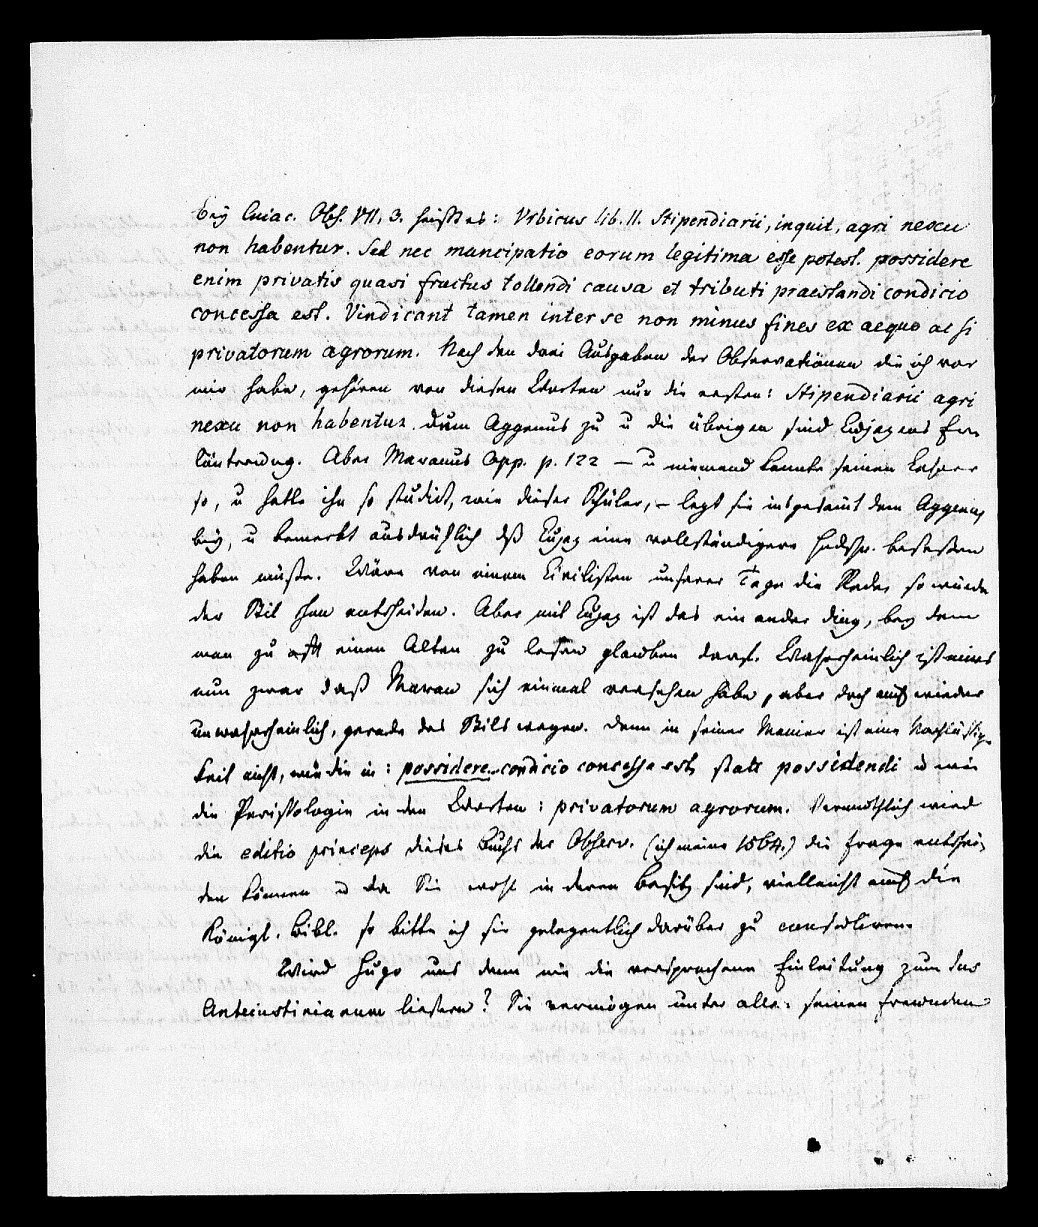 Bey Cuiac. Obs. VII, 3. heißt es: Vrbicus lib. II. Stipendiarii, inquit, agri nexu
non habentur. Sed nec mancipatio eorum legitima esse potest. possidere
enim privatis quasi fructus tollendi causa et tributi praestandi condicio
concessa est. Vindicant tamen inter se non minus fines ex aequo ac si
privatorum agrorum. Nach den drei Ausgaben der Observationen die ich vor
mir habe, gehören von diesen Worten nur die ersten: Stipendiarii agri
nexu non habentur. dem Aggenus zu u die übrigen sind Cujazens Er-
läuterung. Aber Maranus Opp. p. 122 — u niemand kannte seinen Lehrer
so, u hatte ihn so studirt, wie dieser Schüler, — legt sie insgesamt dem Aggenus
bey, u bemerkt ausdrüklich dß Cujaz eine vollständigere Hndschr. besessen
haben müße. Wäre von einem Civilisten unserer Tage die Rede, so würde
der Stil schon entscheiden. Aber mit Cujaz ist das ein ander ding, bey dem
man zu oft einen Alten zu lesen glauben darf. Wahrscheinlich ist eines
nun zwar daß Maran sich einmal versehen habe, aber doch auch wieder
unwahrscheinlich, gerade des Stils wegen. denn in seiner Manier ist eine Nachläßig-
keit nicht, wie die in: possidere condicio concessa est, statt possidendi u wie
die Perissologie in den Worten: privatorum agrorum. Vermuthlich wird
die editio princeps dieses Buchs der Observ. (ich meine 1564.) die Frage entschei-
den können u da Sie wohl in deren Besitz sind, vielleicht auch die
Königl. Bibl. so bitte ich sie gelegentlich darüber zu consuliren.
Wird Hugo uns denn nie die versprochene Einleitung zum Jus
Anteiustinianeum liefern? Sie vermögen unter allen seinen Freunden